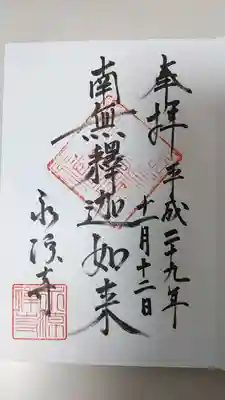 奉拝
平成二十九年
十一月十二日
南無釋迦如来
永源寺